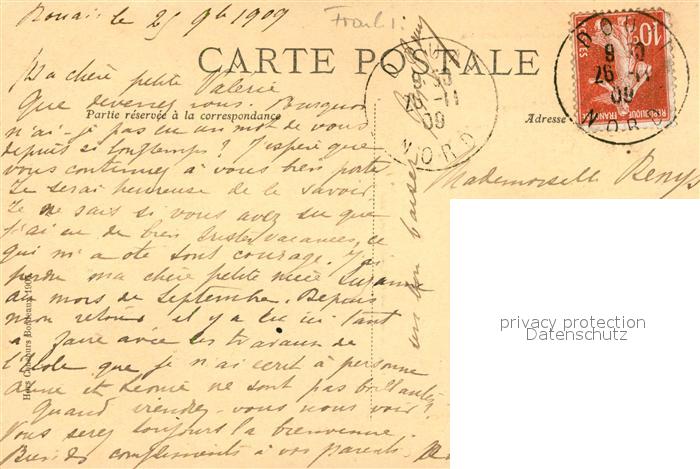 Douai le 25 9bre 1909
CARTE POSTALE
Partie réservée à la correspondance
Adresse
Ma chère petite Valérie
Que devenez vous. Pourquoi
n'ai-je pas eu un mot de vous
depuis si longtemps? J'espère que
vous continuez à vous bien porter
Je serai heureuse de le savoir
Je ne sais si vous avez su que
j'ai eu de bien tristes vacances, ce
qui m'a ôté tout courage. J'ai
perdu ma chère petite nièce Suzanne
au mois de Septembre. Depuis
mon retour il y a eu tant
à faire avec les travaux de
l'école que je n'ai écrit à personne
et Léonie ne sont pas brillantes
Quand viendrez-vous nous voir?
Vous serez toujours la bienvenue.
Bien des compliments à vos parents
un bon baiser
Mademoiselle
DOUAI
NORD
26 -11
09
REPUBLIQUE FRANÇAISE
10c
DOUAI
26 -11
09
NORD
privacy protection
Datenschutz